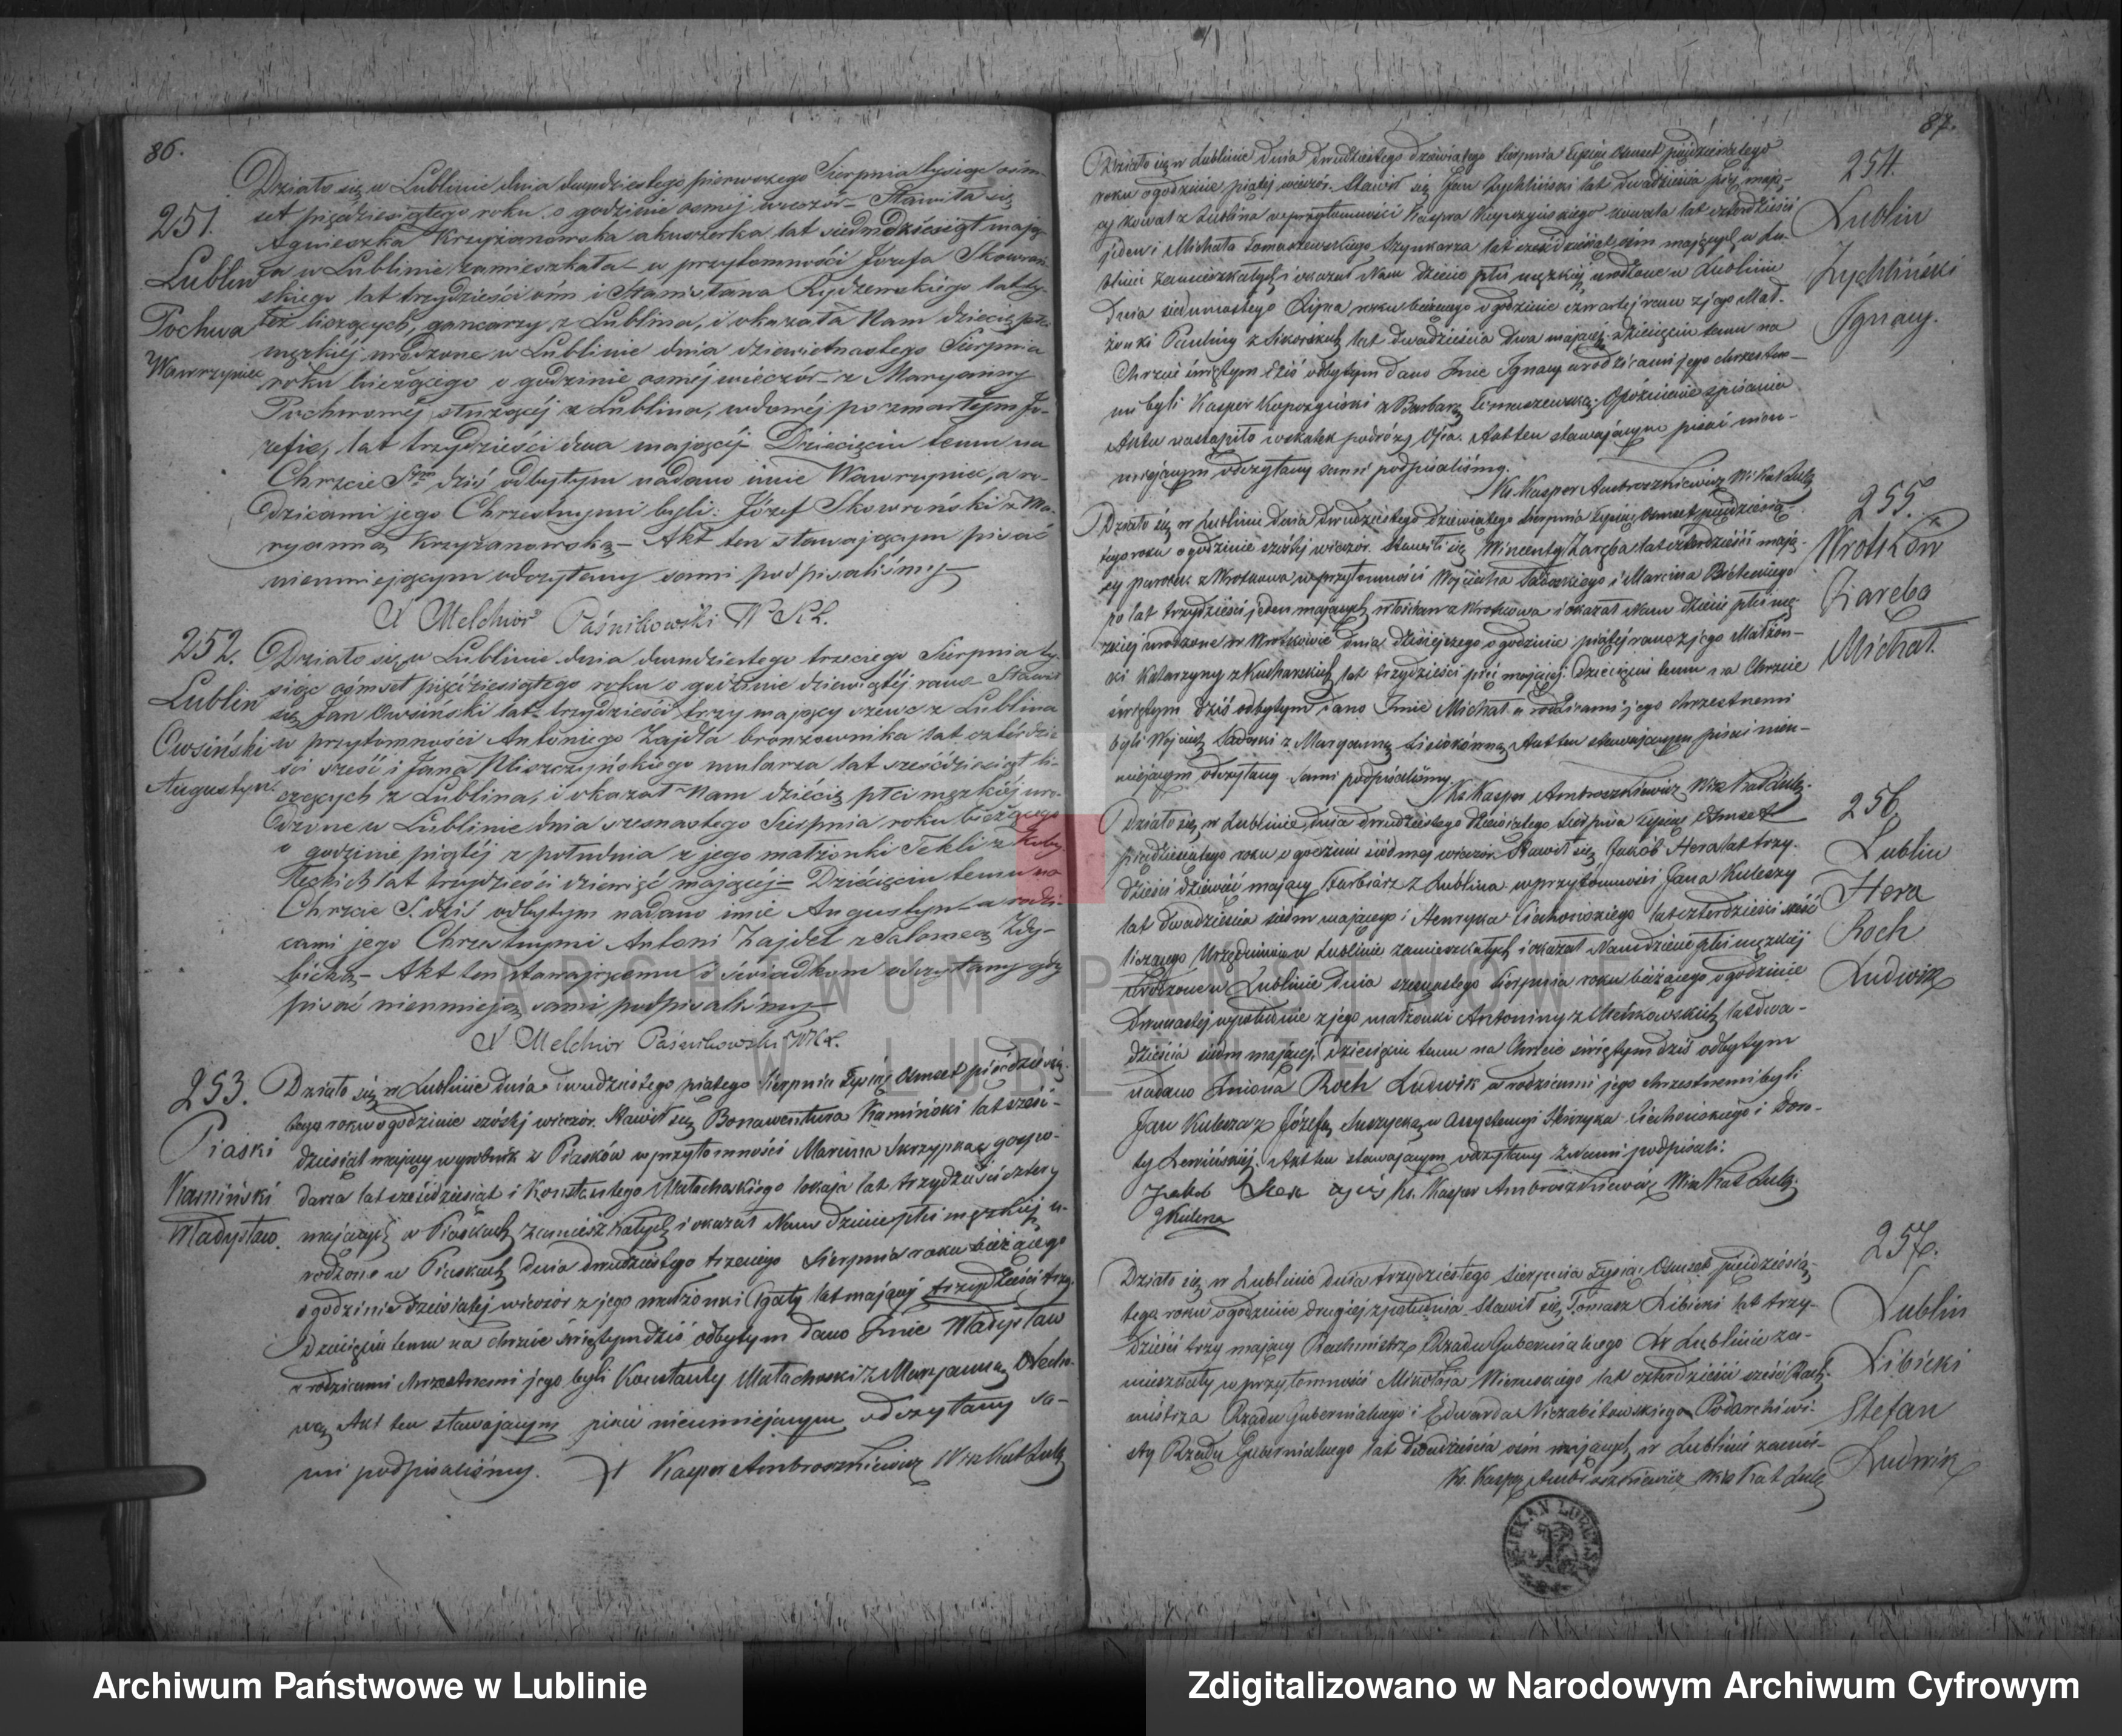 86.
251.
Lublin
Pochwa
Wawrzyniec
Działo się w Lublinie dnia dwudziestego pierwszego Sierpnia tysiąc ośm-
set pięćdziesiątego roku o godzinie osmej wieczór – Stawiła się
Agnieszka Krzyżanowska akuszerka lat siedmdziesiąt mają-
ca w Lublinie zamieszkała – w przytomności Józefa Skowroń-
skiego lat trzydzieści ośm i Stanisława Rydzewskiego lat ty-
leż liczących, garncarzy z Lublina, i okazała Nam dziecię płci
męzkiéj urodzone w Lublinie dnia dziewietnastego Sierpnia
roku bieżącego o godzinie osméj wieczór – z Maryanny
Pochwowéj służącéj z Lublina, wdowéj po zmarłym Jó-
zefie, lat trzydzieści dwa mającéj – Dziecięciu temu na
Chrzcie Sm dziś odbytym nadano imie Wawrzyniec, a ro-
dzicami jego Chrzestnymi byli: Józef Skowroński z Ma-
ryanną Krzyżanowską – Akt ten stawającym pisać
nieumiejącym odczytany sami podpisaliśmy –
X Melchior Paśnikowski W K L.
252.
Lublin
Owsiński
Augustyn.
Działo się w Lublinie dnia dwudziestego trzeciego Sierpnia ty-
siąc ośmset pięćdziesiątego roku o godzinie dziewiątéj rano – Stawił
się Jan Owsiński lat trzydzieści trzy mający szewc z Lublina
w przytomności Antoniego Zajdla bronzownika lat czterdzie-
ści sześć i Jana Mioszczyńskiego mularza lat sześćdziesiąt li-
czących z Lublina, i okazał Nam dziécię płci męzkiéj uro-
dzone w Lublinie dnia szesnastego Sierpnia roku bieżącego
o godzinie piątéj z południa z jego małżonki Tekli z Koby-
łeckich lat trzydzieści dziewięć mającéj – Dziécięciu temu na
Chrzcie S. dziś odbytym nadano imie Augustyn – a rodzi-
cami jego Chrzestnymi Antoni Zajdel z Salomeą Zdy-
bicką – Akt ten stawającemu i świadkom odczytany gdy
pisać nieumieją sami podpisaliśmy –
X Melchior Paśnikowski WKL.
253.
Piaski
Kamiński
Władysław.
Działo się w Lublinie dnia dwudziestego piątego Sierpnia Tysiąc Ośmset pięćdziesią-
tego roku o godzinie szóstéj wieczór. Stawił się Bonawentura Kamiński lat sześć-
dziesiąt mający wyrobnik z Piasków w przytomności Marcina Skrzypka gospo-
darza lat sześćdziesiąt i Konstantego Małachoskiego lokaja lat trzydzieści cztery
mających w Piaskach zamieszkałych i okazał Nam Dziecie płci męzkiéj u-
rodzone w Piaskach dnia dwudziestego trzeciego Sierpnia roku bieżącego
o godzinie dziesiątéj wieczór z jego małżonki Agaty lat mającéj trzydzieści trzy.
Dziecięciu temu na chrzcie świętym dziś odbytym dano Imie Władysław
a rodzicami chrzestnemi jego byli Konstanty Małachoski z Maryanną
wą Akt ten stawającym pisać nieumiejącym odczytany sa-
mi podpisaliśmy. X Kasper Ambroszkiewicz Wik Kat Lub
87.
254.
Lublin
Zychliński
Ignacy.
Działo się w Lublinie dnia dwudziestego dziewiątego Sierpnia Tysiąc Ośmset pięćdziesiątego
roku o godzinie piątéj wieczór. Stawił się Jan Zychliński lat dwadzieścia pięć mają-
cy kowal z Lublina w przytomności Kaspra Kopczyńskiego kowala lat czterdzieści
jeden i Michała Tomaszewskiego Szynkarza lat sześćdziesiąt ośm mających w Lu-
blinie zamieszkałych i okazał Nam dziecie płci męzkiéj urodzone w Lublinie
dnia siedmnastego Lipca roku bieżącego o godzinie czwartéj rano z jego Mał-
żonki Pauliny z Sikorskich lat dwadzieścia dwa mającéj. Dziecięciu temu na
Chrzcie świętym dziś odbytym dano Imie Ignacy a rodzicami jego chrzestne-
mi byli Kasper Kopczyński z Barbarą Tomaszewską. Opóźnienie spisania
Aktu nastąpiło wskutek podróży Ojca. Akt ten stawającym pisać nieu-
miejącym odczytany sami podpisaliśmy.
Ks. Kasper Ambroszkiewicz Wi Kat Lub
255.
Wrotków
Zaręba
Michał.
Działo się w Lublinie dnia dwudziestego dziewiątego Sierpnia Tysiąc Ośmset pięćdziesią-
tego roku o godzinie szóstéj wieczór. Stawił się Wincenty Zaręba lat czterdzieści mają-
cy parobek z Wrotkowa w przytomności Wojciecha Sadoskiego i Marcina Bieleckiego
po lat trzydzieści jeden mających włościan z Wrotkowa i okazał Nam Dziecie płci mę-
zkiéj urodzone w Wrotkowie dnia dzisiejszego o godzinie piątéj rano z jego Małżon-
ki Katarzyny z Kucharskich lat trzydzieści pięć mającéj. Dziecięciu temu na Chrzcie
świętym dziś odbytym dano Imie Michał a rodzicami jego chrzestnemi
byli Wojciech Sadoski z Maryanną Akt ten stawającym pisać nieu-
miejącym odczytany sami podpisaliśmy. Ks Kasper Ambroszkiewicz Wik Kat Lub.
256.
Lublin
Hera
Roch
Ludwik
Działo się w Lublinie dnia dwudziestego dziewiątego Sierpnia tysiąc Ośmset
pięćdziesiątego roku o godzinie siódmej wieczór. Stawił się Jakób Hera lat trzy-
dzieści dziewięć mający Farbiarz z Lublina w przytomności Jana Kuleszy
lat dwadzieścia siedm mającego i Henryka Ciechońskiego lat czterdzieści sześć
liczącego Urzędników w Lublinie zamieszkałych i okazał Nam dziecie płci męzkiéj
urodzone w Lublinie dnia szesnastego Sierpnia roku bieżącego o godzinie
dwunastéj w południe z jego małżonki Antoniny z Mieńkowskich lat dwa-
dzieścia siedm mającéj. Dziecięciu temu na Chrzcie świętym dziś odbytym
nadano Imiona Roch Ludwik a rodzicami jego chrzestnemi byli
Jan Kulesza z Józefą w Assystencyi Henryka Ciechońskiego i Doro-
ty Akt ten stawającym odczytany z niemi podpisali.
Jakób Hera ojciec Ks. Kasper Ambroszkiewicz Wik Kat Lub.
J Kulesza
257.
Lublin
Libicki
Stefan
Ludwik
Działo się w Lublinie dnia trzydziestego Sierpnia Tysiąc Ośmset pięćdziesią-
tego roku o godzinie drugiej z południa. Stawił się Tomasz Libicki lat trzy-
dzieści trzy mający Rachmistrz Rządu Gubernialnego w Lublinie za-
mieszkały w przytomności Mikołaja lat czterdzieści sześć Rach-
mistrza Rządu Gubernialnego i Edwarda Niezabitowskiego Podarchiwi-
sty Rządu Gubernialnego lat dwadzieścia ośm mających w Lublinie zamie-
Ks. Kasper Ambroszkiewicz Wik Kat Lub
DZIEKAN LUBELSKI
ARCHIWUM PAŃSTWOWE
W LUBLINIE
Archiwum Państwowe w Lublinie
Zdigitalizowano w Narodowym Archiwum Cyfrowym